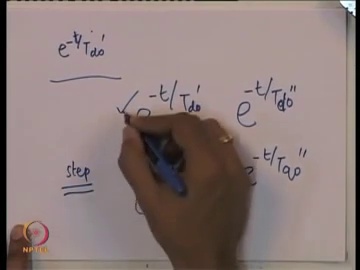 e^-t/Tdo'
e^-t/Tdo' e^-t/Tdo''
step e^-t/Tqo''
NPTEL